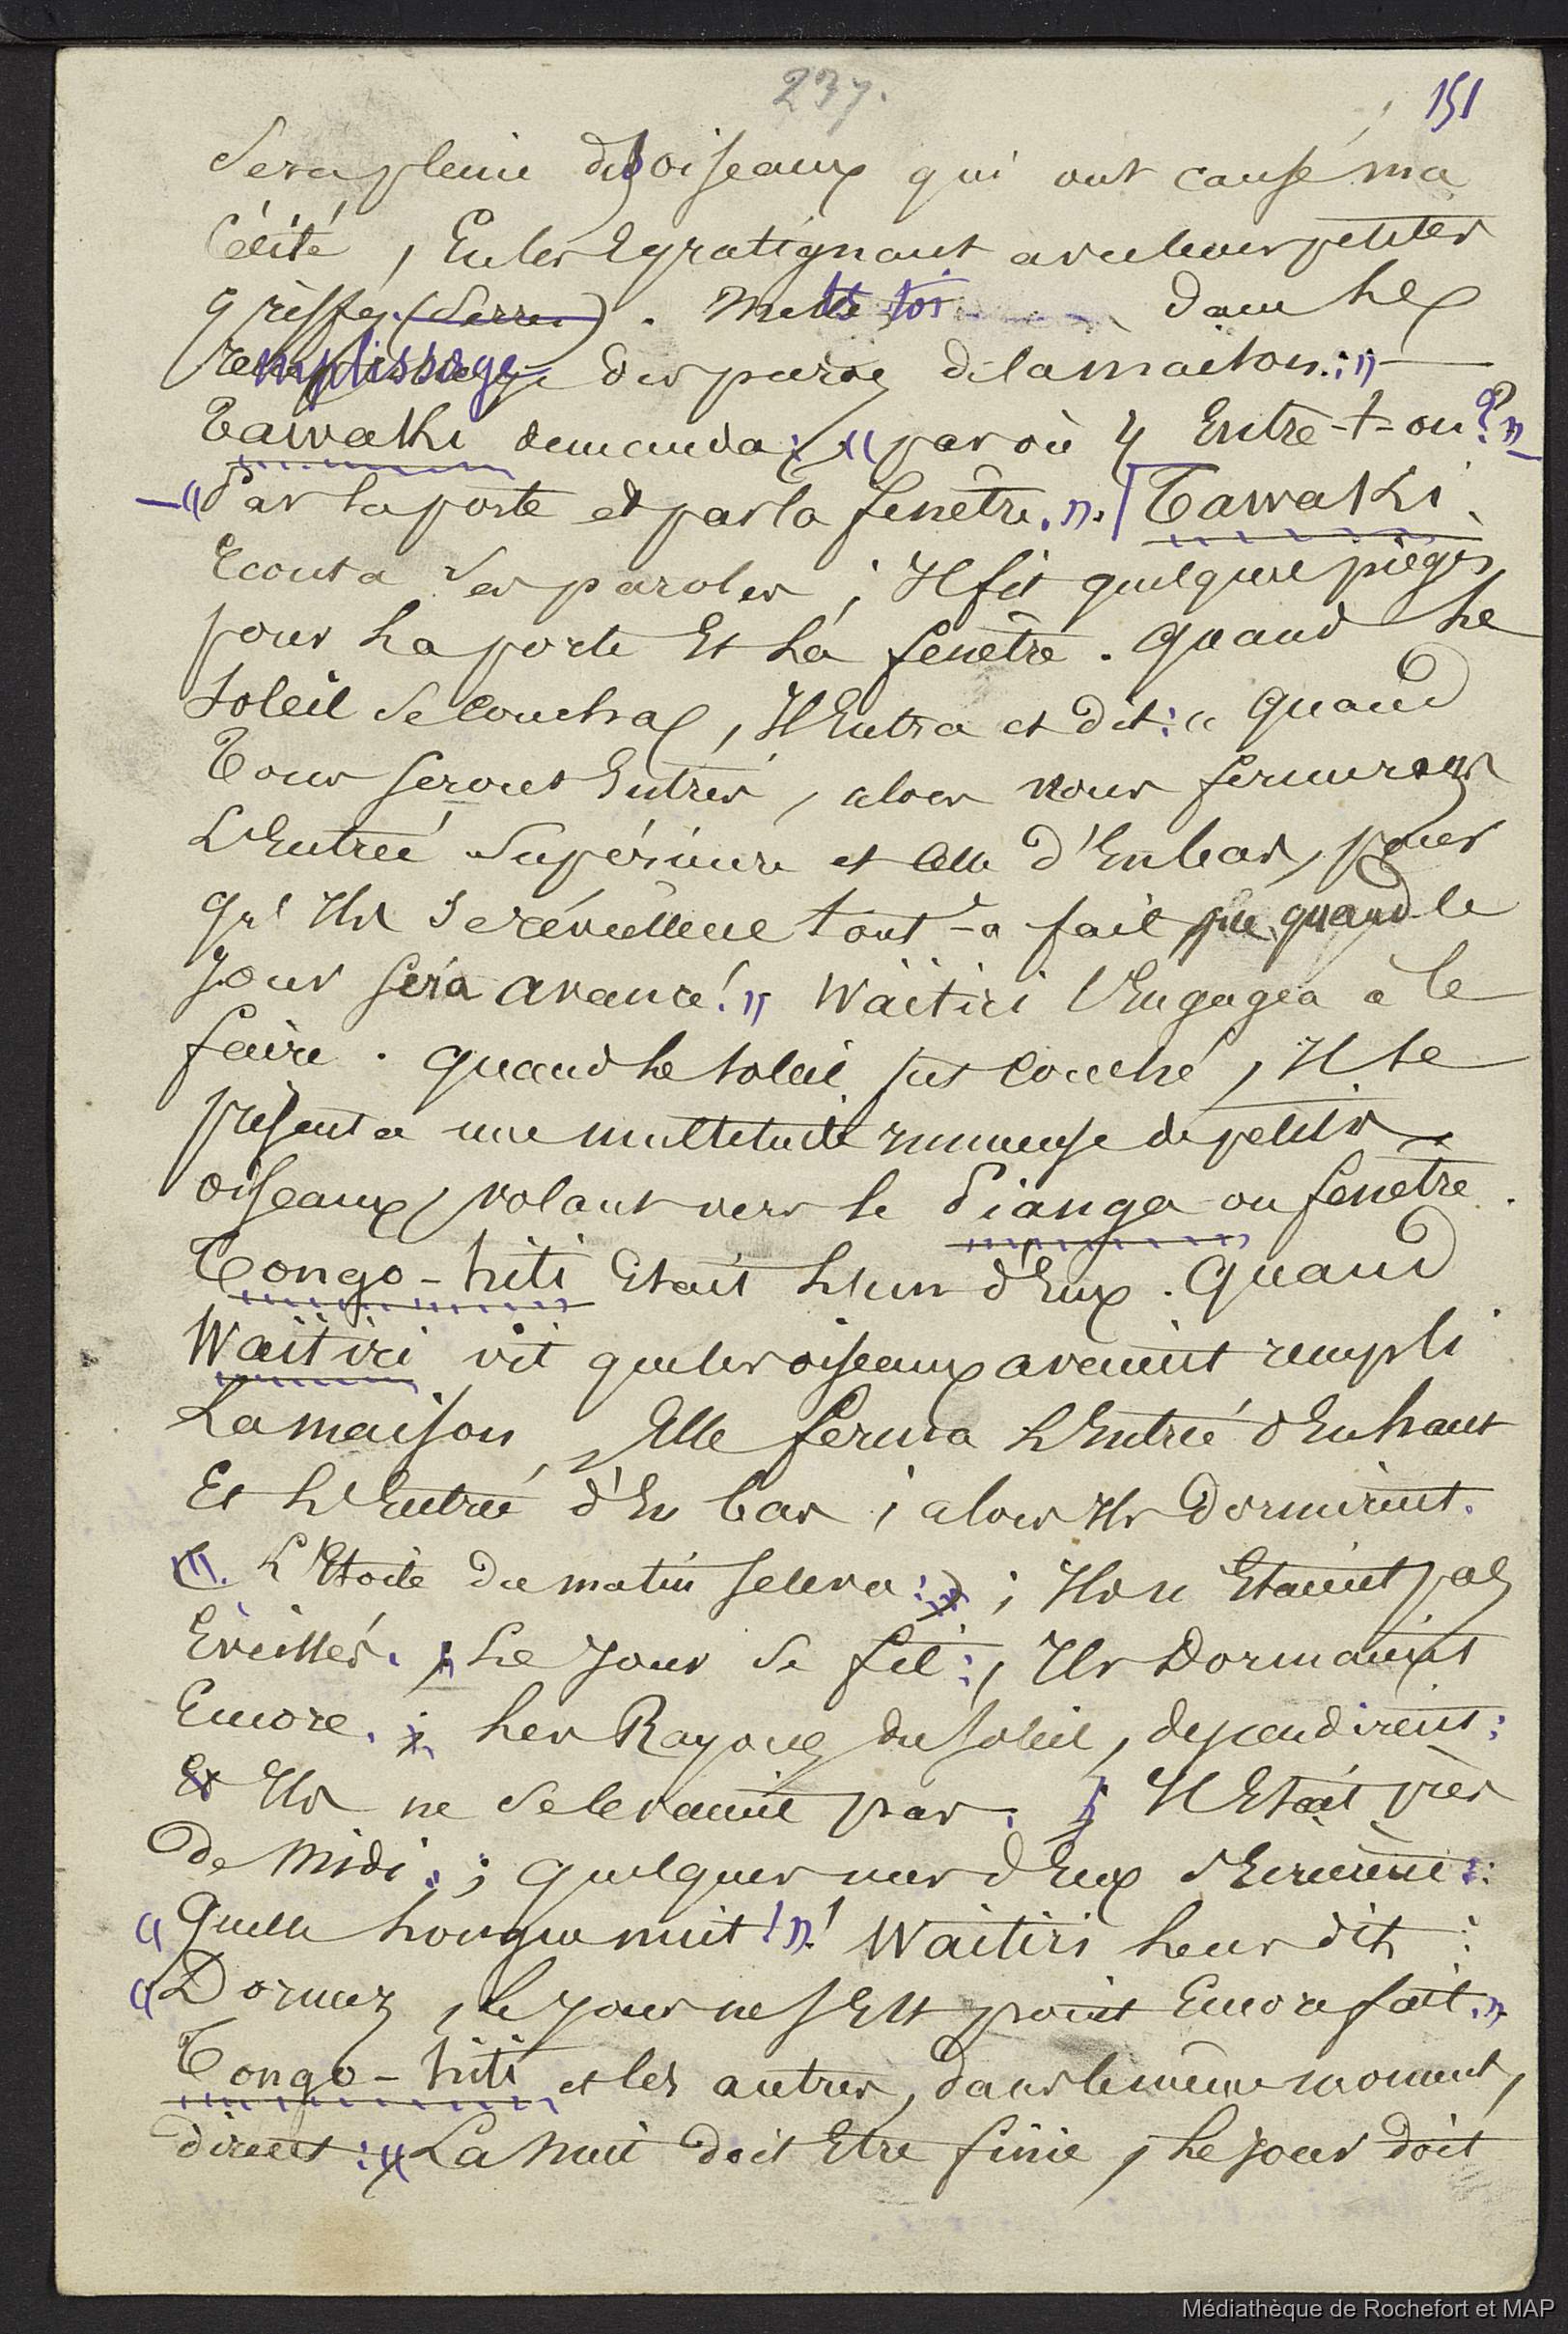 237.
151
Sera pleine des oiseaux qui ont causé ma
Cécité, En les Egratignant avec leurs petites
griffes (Serres). Mets toi dans les
remplissage des parois de la maison.; »
Tawaki demanda: « par où y Entre-t-on? »
— « Par la porte et par la fenêtre. ». Tawaki
Ecouta ses paroles ; Il fit quelques pièges
pour La porte Et La fenêtre. Quand Le
Soleil Se Coucha, Il Entra et dit: « Quand
Tous seront Entrés, alors nous fermerons
L'Entrée Supérieure et celle d'En bas, pour
qu'Ils Se réveillent tout-à fait que quand le
Jour sera avancé! » Waitiri l'Engagea à le
faire. Quand Le Soleil fut Couché, Il Se
présenta une multitude immense de petits
oiseaux, volant vers le Pianga ou fenêtre.
Tongo-hiti Etait L'un d'Eux. Quand
Waitiri vit que les oiseaux avaient rempli
La maison, Elle ferma L'Entrée d'En haut
Et L'Entrée d'En bas ; alors Ils Dormirent.
L'Etoile du matin se leva: ; Ils n'Etaient pas
Eveillés. ; Le Jour Se fit: , Ils Dormaient
Encore. ; Les Rayons du Soleil, descendirent:
Et Ils ne Se levaient pas. ; Il Etait près
de Midi. ; quelques uns d'Eux s'Ecrièrent:
« Quelle Longue nuit! »! Waitiri Leur dit :
« Dormez, le Jour ne s'Est point Encore fait. »
Tongo-hiti et les autres, dans le même moment,
dirent: « La Nuit doit Etre finie, Le Jour doit
Médiathèque de Rochefort et MAP